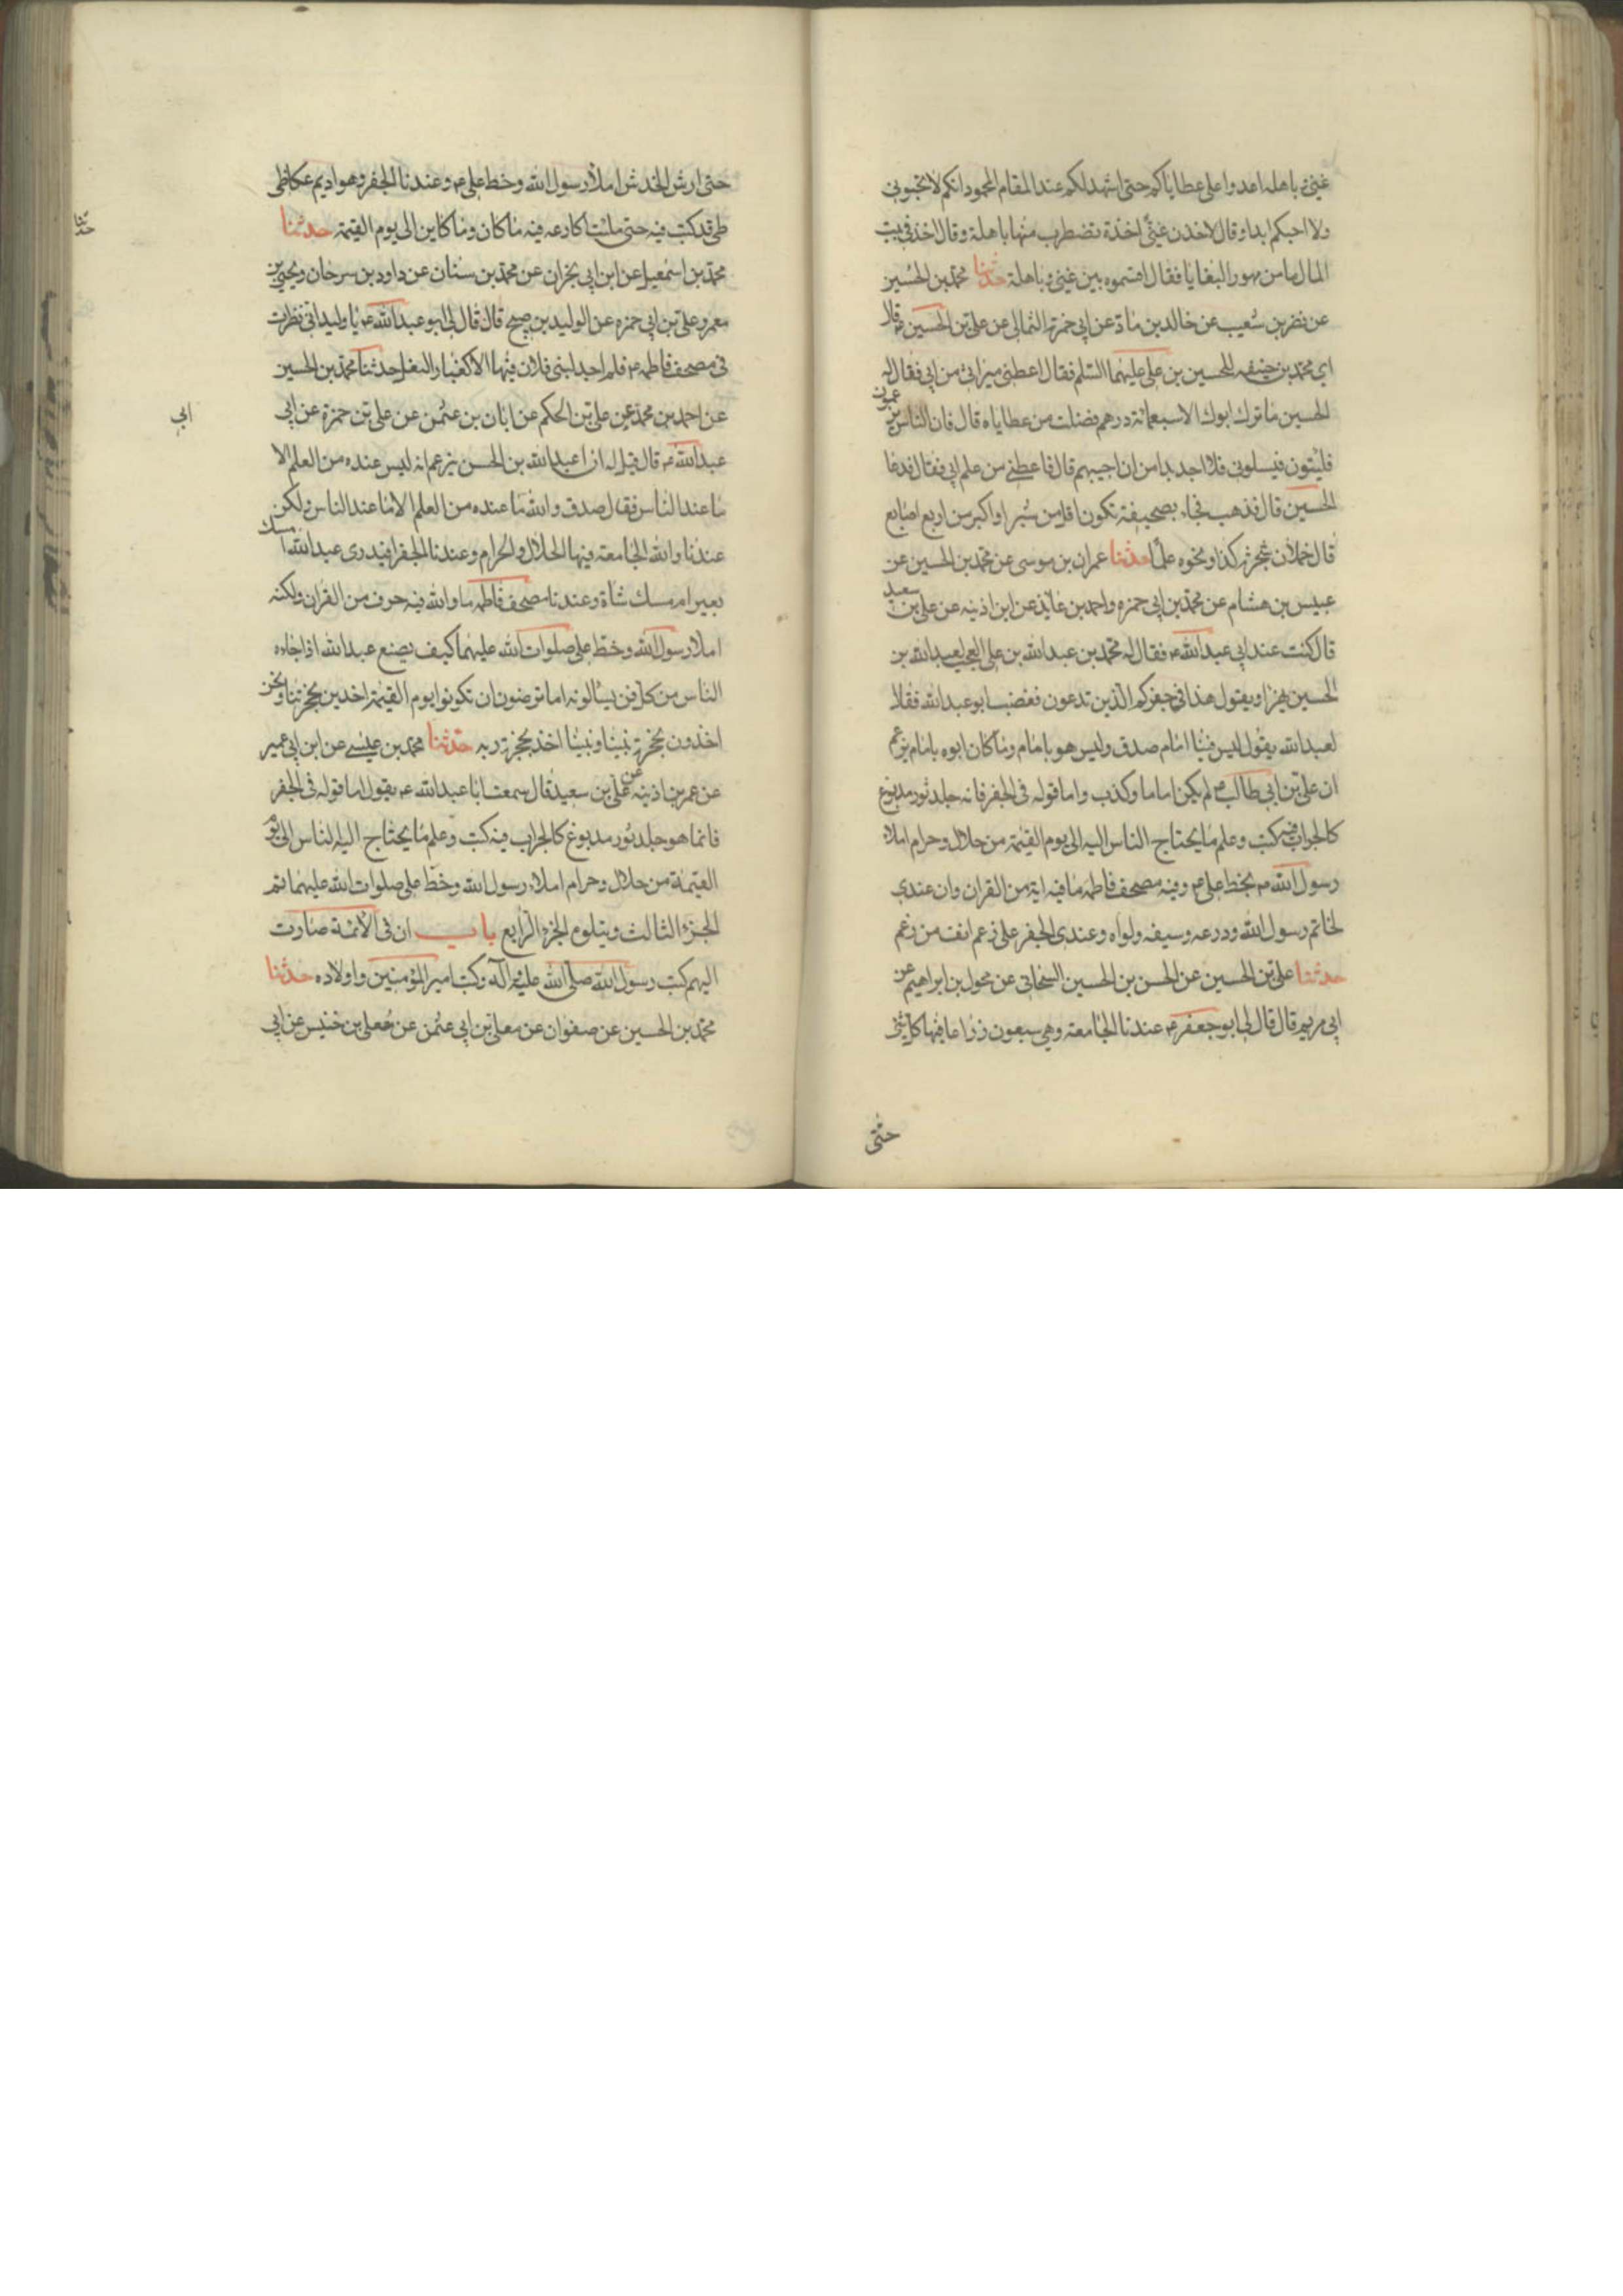 غنى و باهله اعدوا على عطاياكم حتى اشهد لكم عند المقام المحمود انكم لا تحبونى
ولا احبكم ابدا وقال لاخذن غنى اخذة تضطرب منها باهلة وقال اخذ فى بيت
المال مال من مهور البغايا فقال اقسموه بين غنى و باهلة حدثنا محمد بن الحسين
عن نضر بن شعيب عن خالد بن ماد عن ابى حمزة الثمالى عن على بن الحسين ع قال
اى محمد بن حنفيه للحسين بن على عليهما السلم فقال اعطنى ميراثى من ابى فقال له
الحسين ما ترك ابوك الا سبعمائة درهم فضلت من عطاياه قال فان الناس
فليتون فيسلونى فلا اجد بدا من ان اجيبهم قال فاعطنى من علم ابى فقال فدعا
الحسين قال فذهب فجاء بصحيفة تكون اقل من شبر او اكبر من اربع اصابع
قال فملأن شجرة كذا ونحوه علما حدثنا عمران بن موسى عن محمد بن الحسين عن
عبيس بن هشام عن محمد بن ابى حمزه واحمد بن عايذ عن ابن اذينه عن على بن سعيد
قال كنت عند ابى عبدالله ع فقال له محمد بن عبدالله بن على العجب لعبدالله بن
الحسين يهزا ويقول هذا فى جفركم الذين تدعون فغضب ابو عبدالله فقال
لعبدالله يقول ليس فينا امام صدق وليس هو بامام وما كان ابوه بامام يزعم
ان على بن ابى طالب ع لم يكن اماما وكذب واما قوله فى الجفر فانه جلد ثور مدبوغ
كالجراب فيه كتب وعلم ما يحتاج الناس اليه الى يوم القيمة من حلال وحرام املاء
رسول الله ص بخط على ع وفيه مصحف فاطمه ما فيه اية من القران وان عندى
لخاتم رسول الله ودرعه وسيفه ولواه وعندى الجفر على زعم انف من زعم
حدثنا على بن الحسين عن الحسن بن الحسين السحالى عن مخول بن ابراهيم عن
ابى مريم قال قال لى ابو جعفر ع عندنا الجامعه وهى سبعون ذراعا فيها كل شئ
حتى
حتى ارش الخدش املاء رسول الله وخط على ع وعندنا الجفر وهو اديم عكاظى
قد كتب فيه حتى ملئت اكارعه فيه ما كان وما كاين الى يوم القيمة حدثنا
محمد بن اسمعيل عن ابن ابى نجران عن محمد بن سنان عن داود بن سرحان ويحيى بن
معمر وعلى بن ابى حمزه عن الوليد بن صبيح قال قال لى ابو عبدالله ع يا وليد انى نظرت
فى مصحف فاطمه ع فلم اجد لبنى فلان فيها الا كغبار النعل حدثنا محمد بن الحسين
عن احمد بن محمد عن على بن الحكم عن ابان بن عثمن عن على بن حمزة عن ابى
ابى
عبدالله ع قال قيل له ان عبدالله بن الحسن يزعم انه ليس عنده من العلم الا
ما عند الناس فقال صدق والله ما عنده من العلم الا ما عند الناس ولكن
عندنا والله الجامعه فيها الحلال والحرام وعندنا الجفر افيدرى عبدالله امسك
بعير ام مسك شاة وعندنا مصحف فاطمه ما والله فيه حرف من القران ولكنه
املاء رسول الله وخط على صلوات الله عليهما كيف يصنع عبدالله اذا جاءه
الناس من كل فن يسألونه اما ترضون ان تكونوا يوم القيمة اخذين بحجزتنا ونحن
اخذون بحجزة نبينا ونبينا اخذ بحجزة ربه حدثنا محمد بن عيسى عن ابن ابى عمير
عن عمر بن اذينه عن على بن سعيد قال سمعت ابا عبدالله ع يقول اما قوله فى الجفر
فانما هو جلد ثور مدبوغ كالجراب فيه كتب وعلم ما يحتاج اليه الناس الى يوم
القيمة من حلال وحرام املاء رسول الله وخط على صلوات الله عليهما تم
الجزء الثالث ويتلوه الجزء الرابع باب ان فى الائمة صارت
اليهم كتب رسول الله صلى الله عليه وآله وكتب امير المؤمنين واولاده حدثنا
محمد بن الحسين عن صفوان عن معلى بن ابى عثمن عن معلى بن خنيس عن ابى